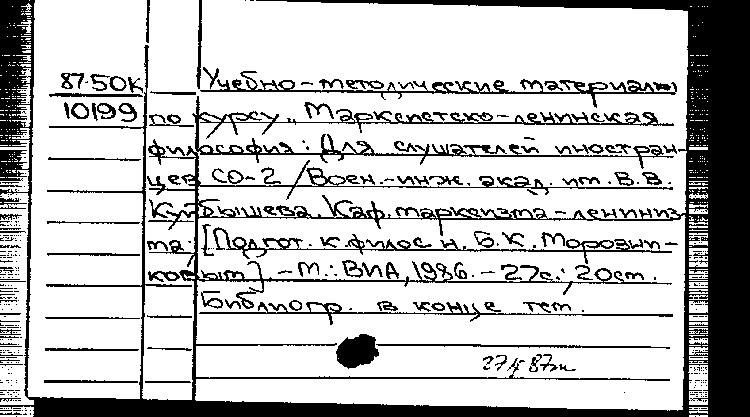 87-50К Учебно-методические материалы
10199 по курсу „Марксистско-ленинская
философия: Для слушателей иностран-
цев СО-2 / Воен.-инж. акад. им. В.В.
Куйбышева. Каф. марксизма-лениниз-
ма; [Подгот. к. филос. н. Б.К. Морозын-
ковым]. - М.: ВИА, 1986. - 27с.; 20см.
Библиогр. в конце тем.